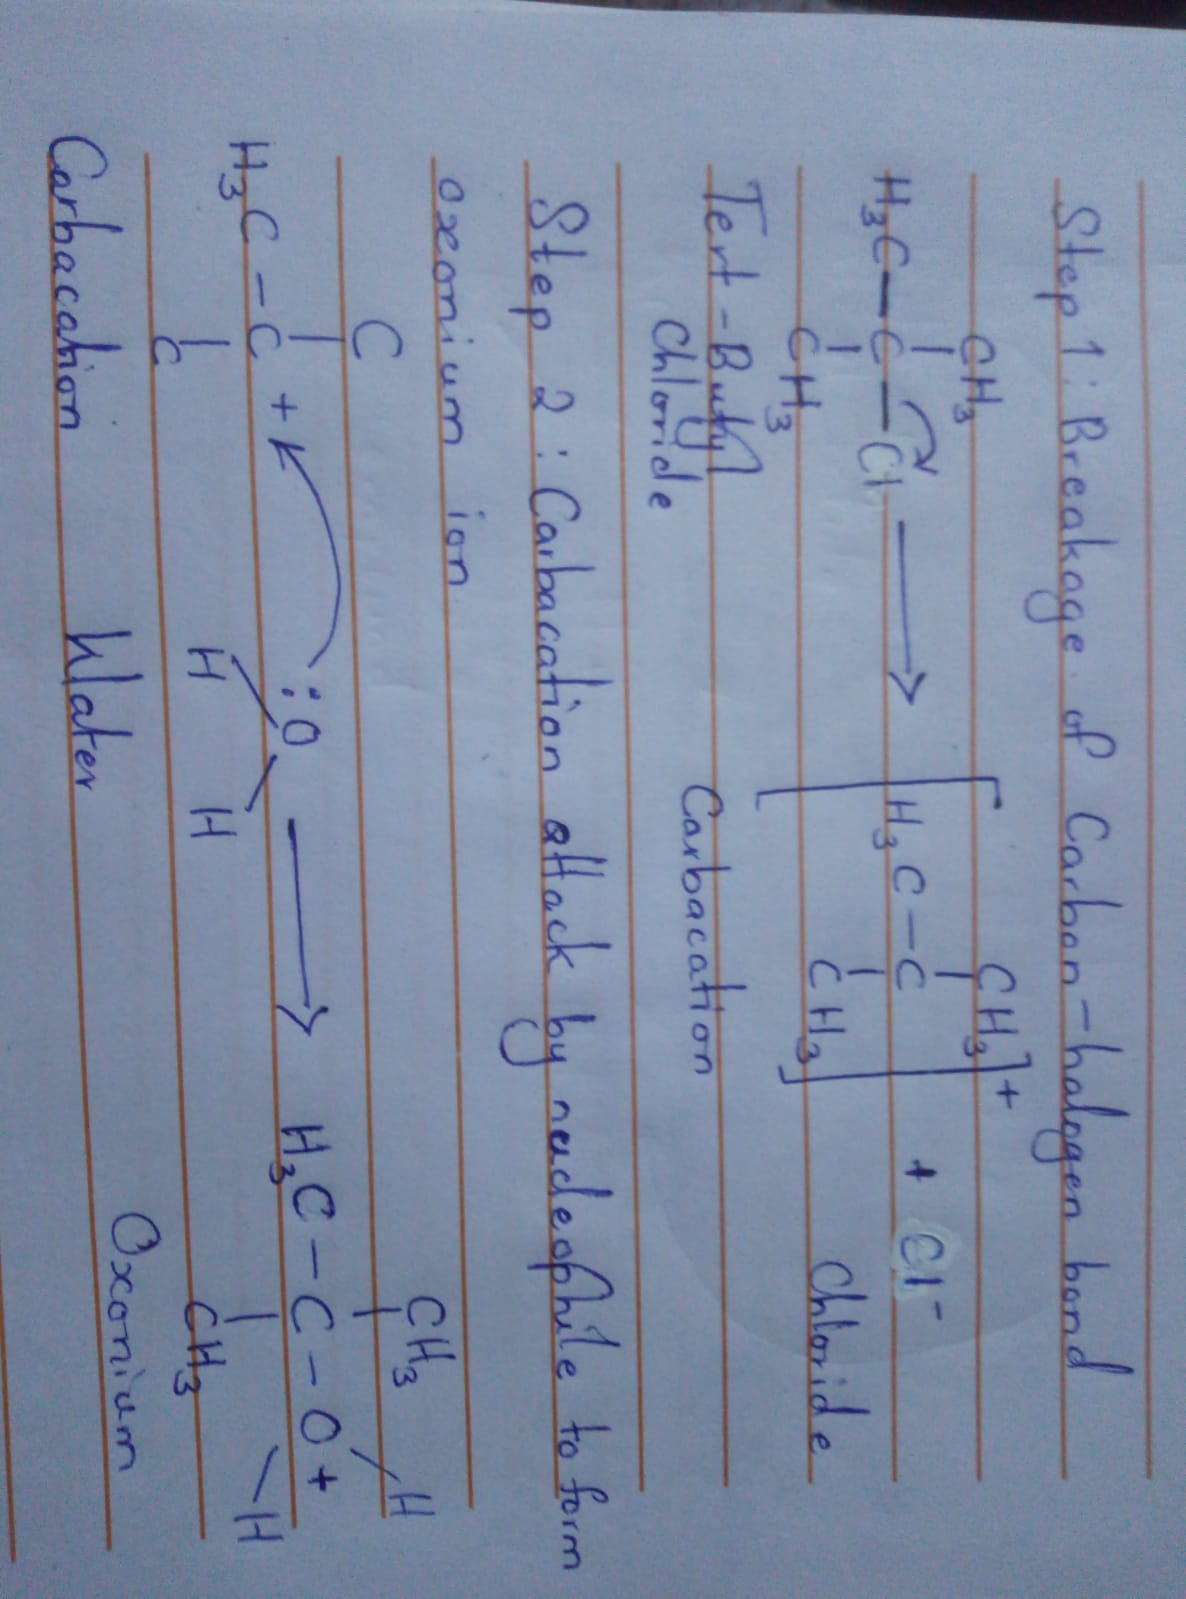 Step 1: Breakage of Carbon-halogen bond
CH3 CH3 +
H3C-C-Cl → [H3C-C] + Cl-
CH3 CH3 Chloride
Tert-Butyl Carbacation
Chloride
Step 2: Carbacation attack by nucleophile to form
oxonium ion
C CH3 H
H3C-C+ :O → H3C-C-O+
C H H CH3 H
Carbacation Water Oxonium